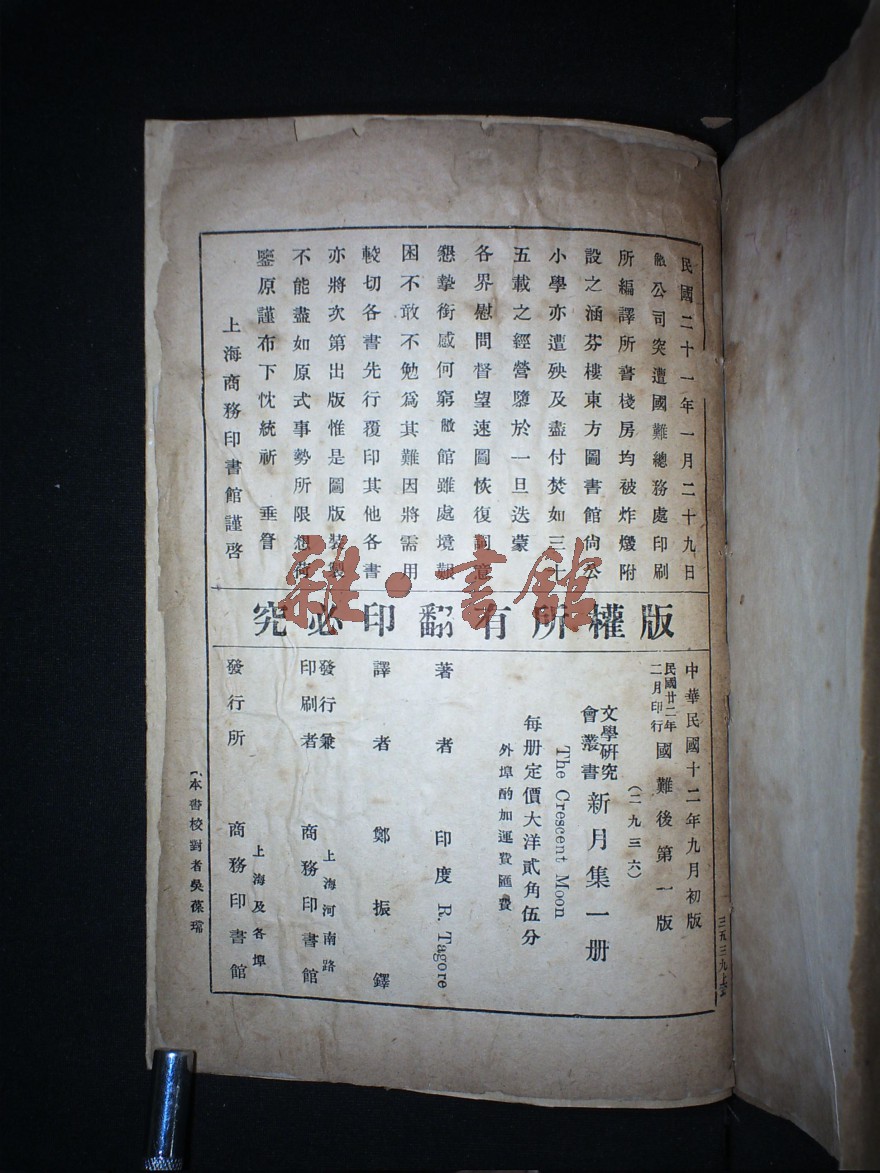 民國二十一年一月二十九日
敝公司突遭國難總務處印刷
所編譯所書棧房均被炸燬附
設之涵芬樓東方圖書館尚公
小學亦遭殃及盡付焚如三十
五載之經營隳於一旦迭蒙
各界慰問督望速圖恢復詞意
懇摯銜感何窮敝館雖處境艱
困不敢不勉爲其難因將需用
較切各書先行覆印其他各書
亦將次第出版惟是圖版裝製
不能盡如原式事勢所限想荷
鑒原謹布下忱統祈 垂詧
上海商務印書館謹啓
版權所有翻印必究
中華民國十二年九月初版
民國廿二年二月印行 國難後第一版
(二九三六)
文學研究會叢書 新月集一册
The Crescent Moon
每册定價大洋貳角伍分
外埠酌加運費匯費
著者 印度 R. Tagore
譯者 鄭振鐸
發行兼印刷者 上海河南路 商務印書館
發行所 上海及各埠 商務印書館
(本書校對者吳葆
三五三九上
雜·書館